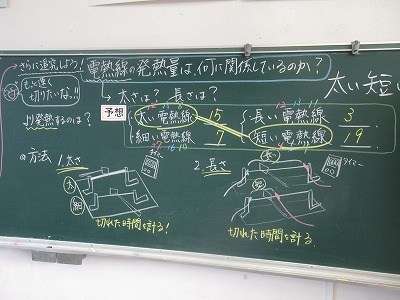 さらに追究しよう！ 電熱線の発熱量は、何に関係しているのか？
もっと速く
切りたいなっ!!
→太さは？ 長さは？
太い短い
予想
太い電熱線 15
細い電熱線 7
長い電熱線 3
短い電熱線 19
より発熱するのは？
方法 1 太さ
2. 長さ
タイマー
太
細
切れた時間を計る！
長い
短
タイマー
切れた時間を計る